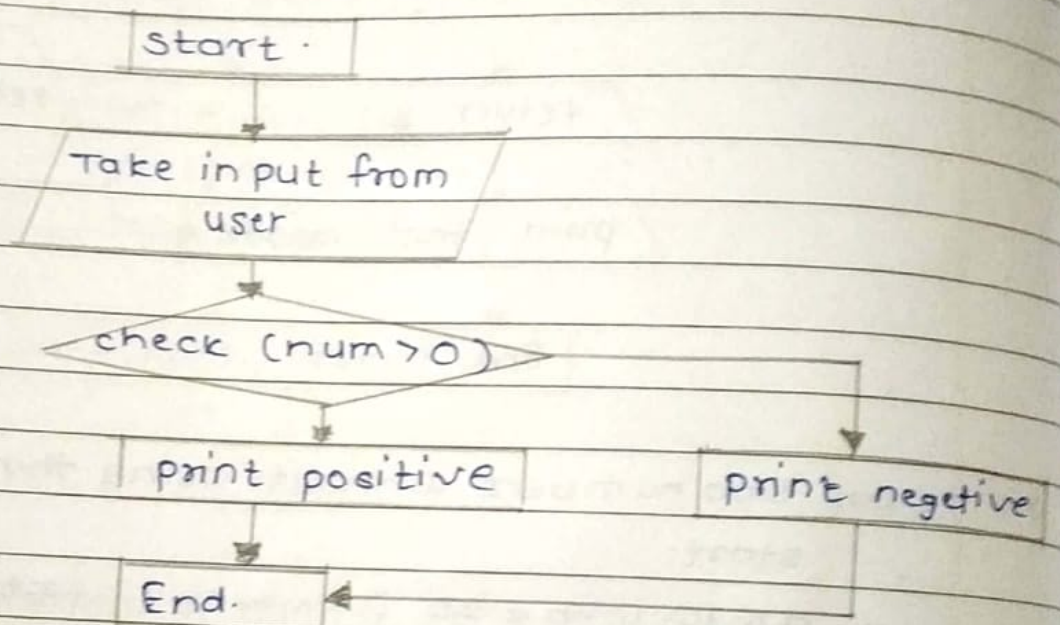 Start.
Take input from
user
check (num>0)
print positive
print negetive
End.